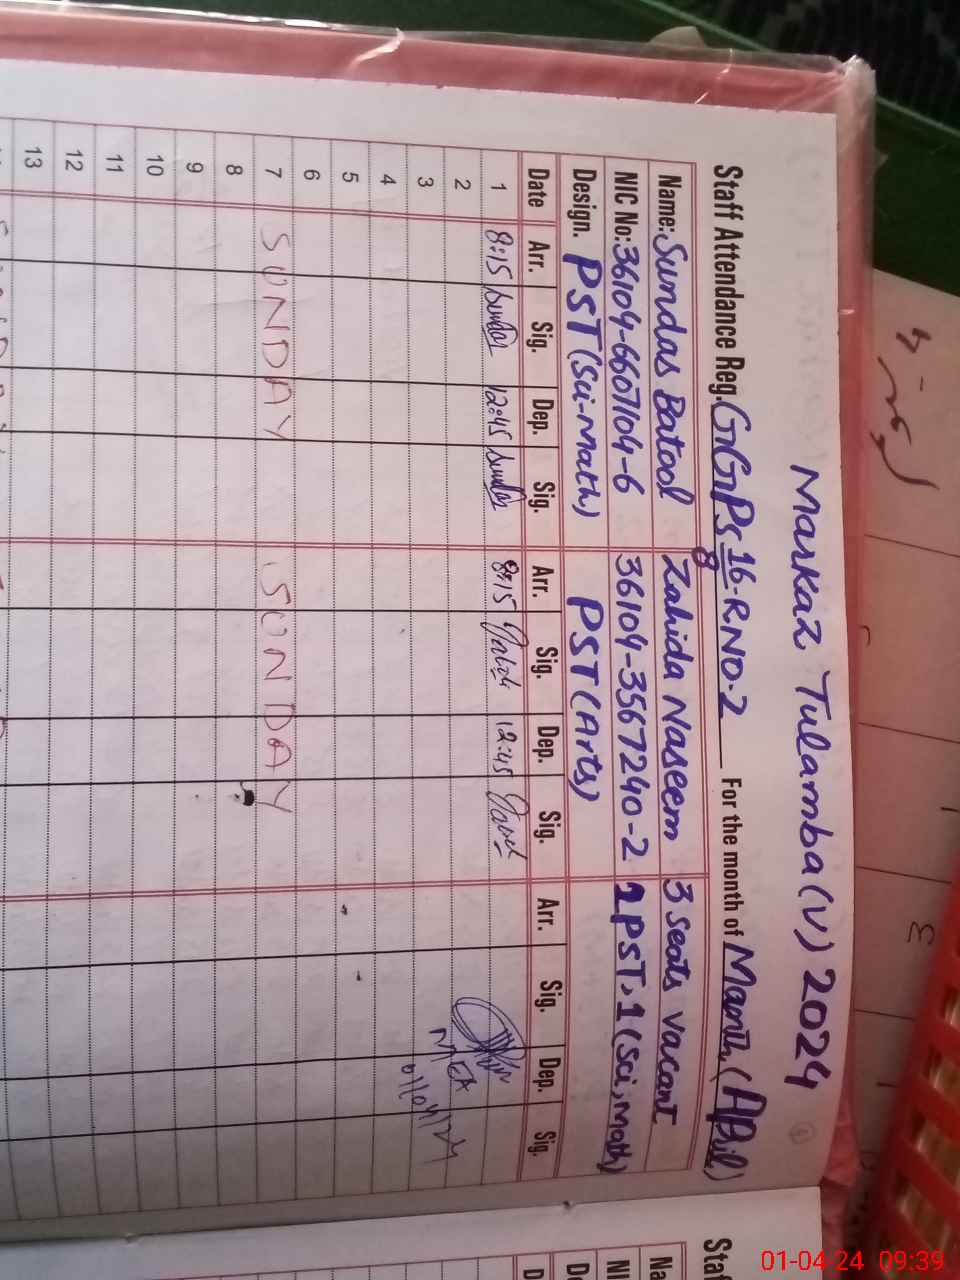 Markaz Tulamba (V) 2024
Staff Attendance Reg. GGPS 16-8 RNO-2 For the month of Month, (April)
Name: Sundas Batool Zahida Naseem 3 seats vacant
NIC No: 36104-6607104-6 36104-3567240-2 2 PST, 1 (Sci, math)
Design. PST (Sci-Math) PST (Arts)
Date Arr. Sig. Dep. Sig. Arr. Sig. Dep. Sig. Arr. Sig. Dep. Sig.
1 8:15 12:45 8:15 12:45
2
3
4
5
6
7 SUNDAY SUNDAY
8
9
10
11
12
13
01/04/24
01-04-24 09:39